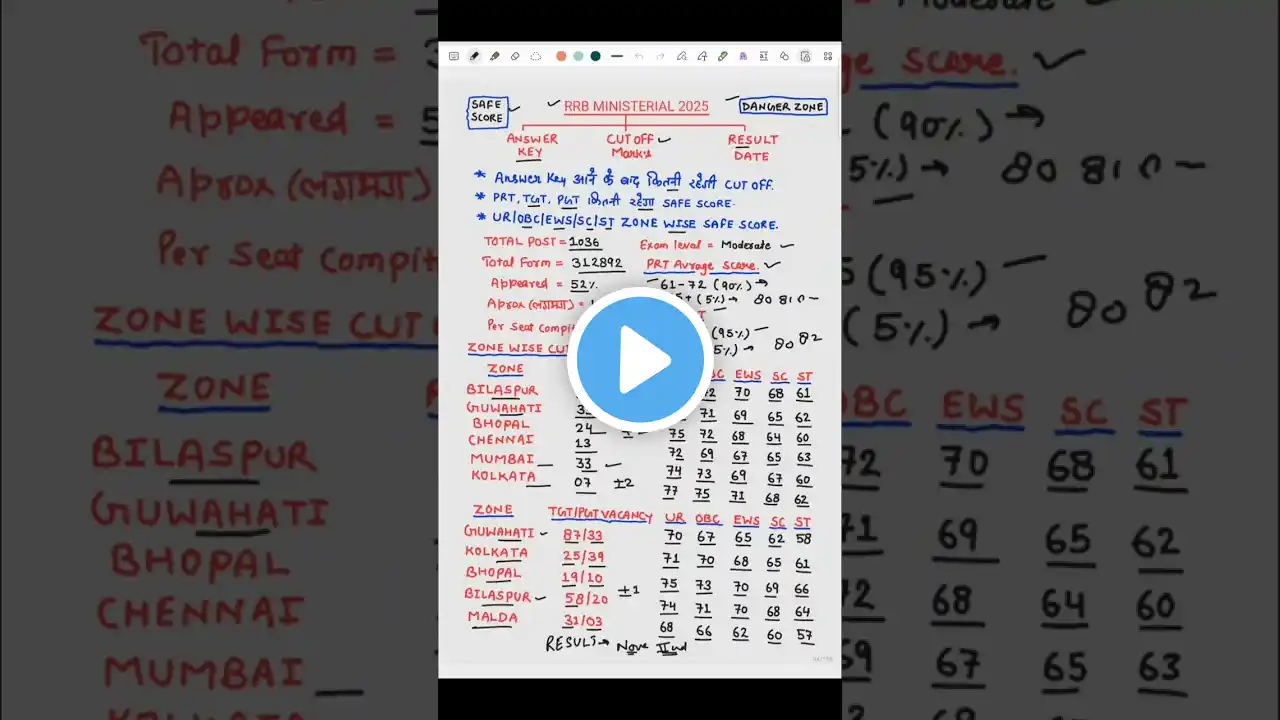 SAFE SCORE
RRB MINISTERIAL 2025
DANGER ZONE
ANSWER KEY
CUT OFF Marks
RESULT DATE
* Answer Key आने के बाद कितनी रहेगी CUT OFF.
* PRT, TGT, PGT कितनी रहेगा SAFE SCORE.
* UR/OBC/EWS/SC/ST ZONE WISE SAFE SCORE.
TOTAL POST = 1036
Exam level = Moderate
Total Form = 312892
PRT Avrage Score.
Appeared = 52%
61-72 (90%) →
Aprox (लगभग) =
(5%) → 80 81
Per Seat Compit
(95%)
5%) → 80 82
ZONE WISE CUT
ZONE
EWS SC ST
BILASPUR 70 68 61
GUWAHATI 71 69 65 62
BHOPAL 24 75 72 68 64 60
CHENNAI 13 72 69 67 65 63
MUMBAI 33 74 73 69 67 60
KOLKATA 07 ±2 77 75 71 68 62
ZONE TGT/PGT VACANCY UR OBC EWS SC ST
GUWAHATI 87/33 70 67 65 62 58
KOLKATA 25/39 71 70 68 65 61
BHOPAL 19/10 75 73 70 69 66
BILASPUR 58/20 ±1 74 71 70 68 64
MALDA 31/03 68 66 62 60 57
RESULT → Nov IInd